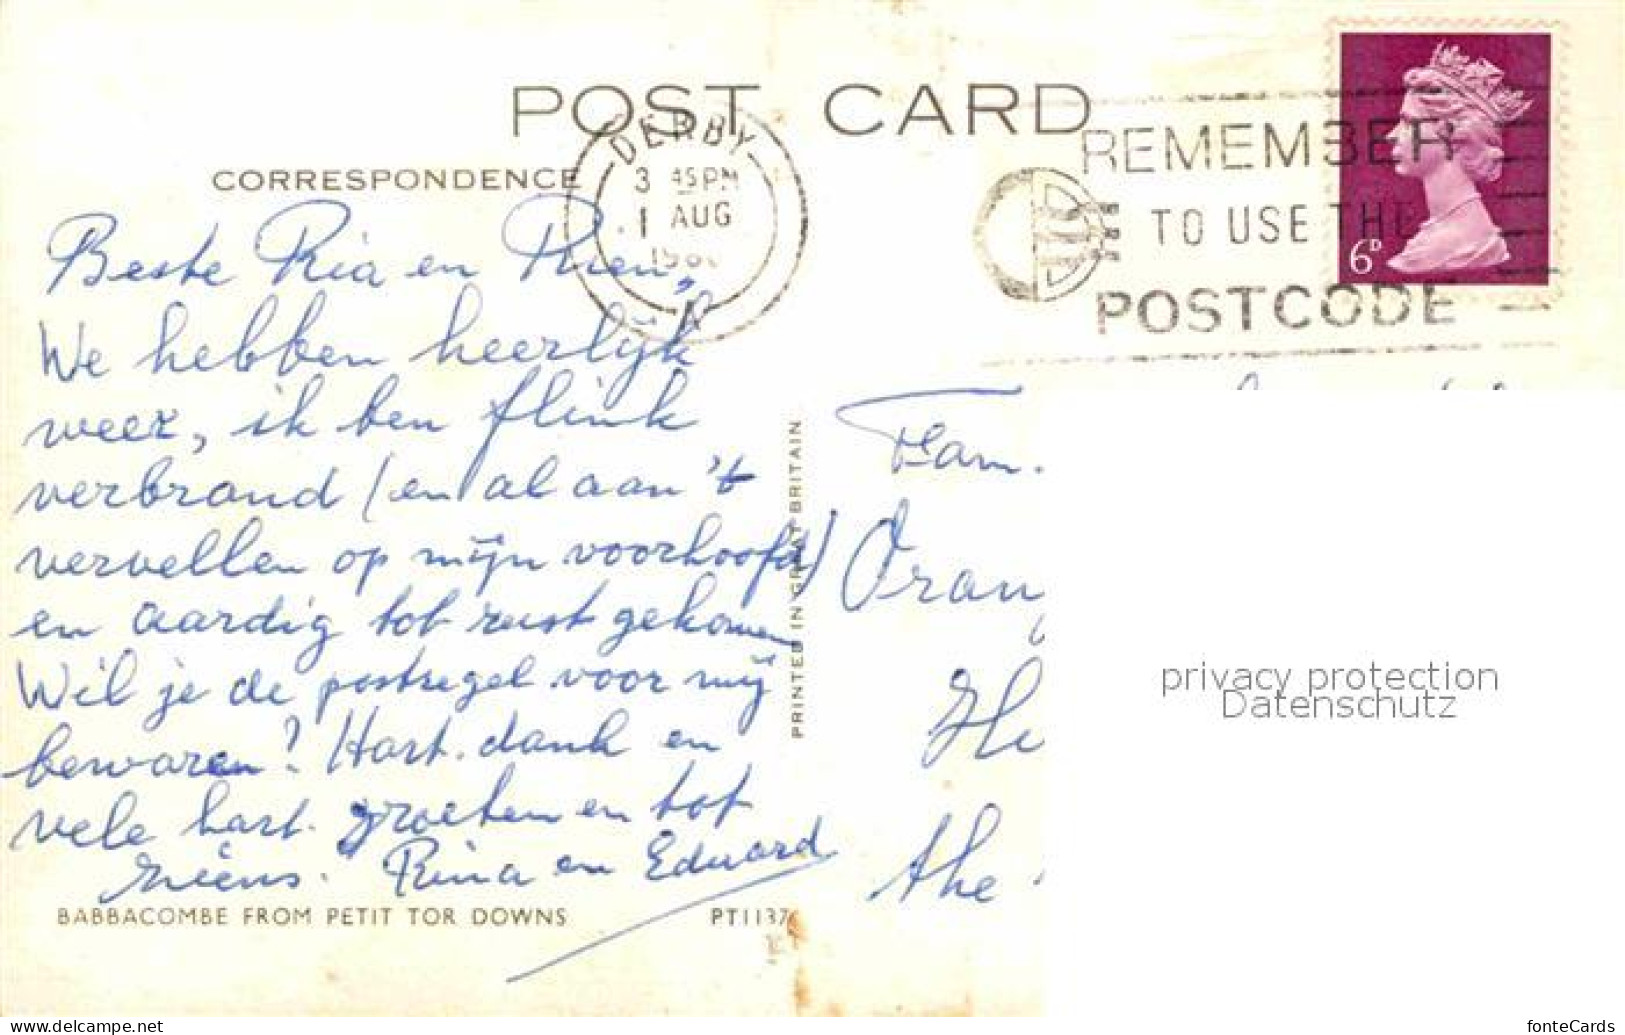 POST CARD
CORRESPONDENCE
DERBY
3 45 PM
1 AUG
REMEMBER
TO USE THE
POSTCODE
6D
Beste Ria en Rien,
We hebben heerlijk
weer, ik ben flink
verbrand (en al aan 't
vervellen op mijn voorhoofd)
en aardig tot rust gekomen
Wil je de postzegel voor mij
bewaren? Hart. dank en
vele hart. groeten en tot
ziens. Rina en Eduard
BABBACOMBE FROM PETIT TOR DOWNS
PT1137
PRINTED IN GREAT BRITAIN
Fam.
Oran
He
the
privacy protection
Datenschutz
fonteCards